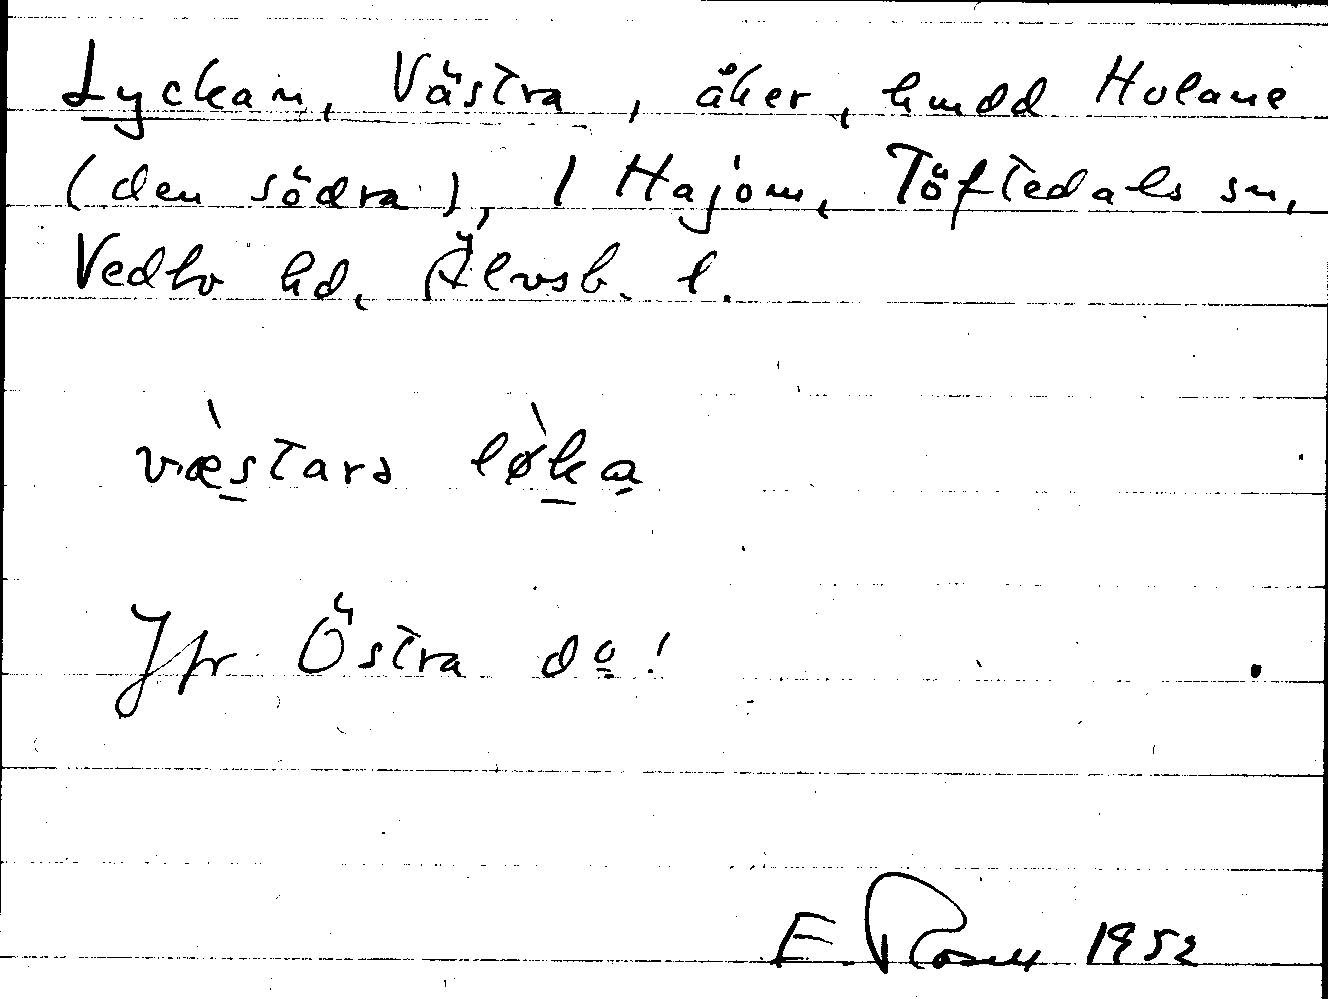 Lyckan, Västra, åker, hmdd Holane
(den södra), 1 Hajom, Töftedals sn,
Vedbo hd, Älvsb. l.
væstarə løka
Jfr Östra do!
E. Rosell 1952